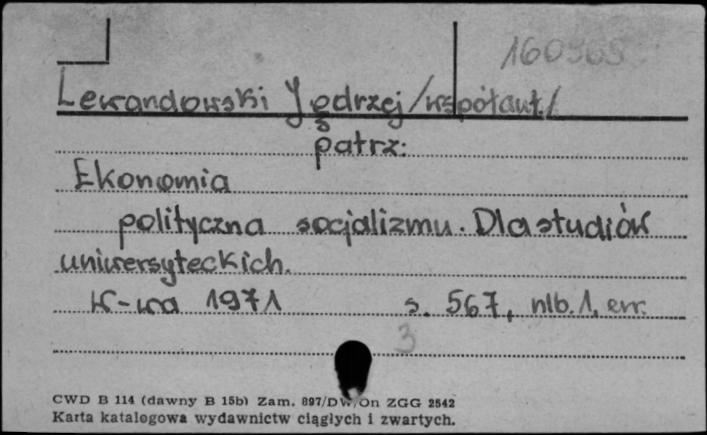 160969
Lewandowski Jędrzej /współaut./
patrz:
Ekonomia
polityczna socjalizmu. Dla studiów
uniwersyteckich.
W-wa 1971 s. 567, nlb. 1, err.
3
CWD B 114 (dawny B 15b) Zam. 897/DW/On ZGG 2542
Karta katalogowa wydawnictw ciągłych i zwartych.